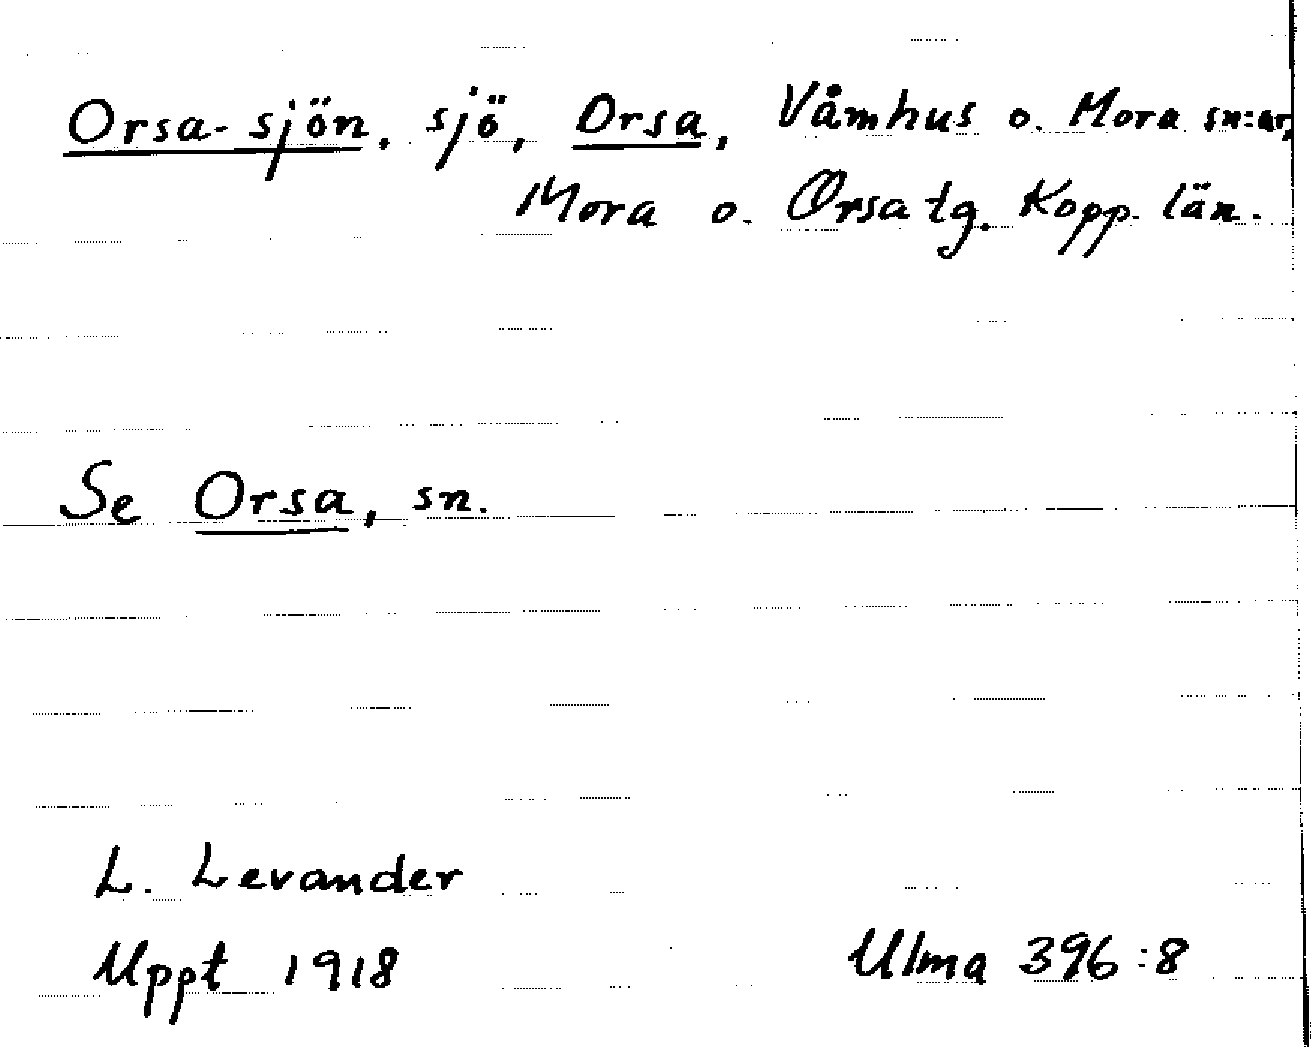 Orsa-sjön, sjö, Orsa, Våmhus o. Mora sn:ar,
Mora o. Orsa tg. Kopp. län.
Se Orsa, sn.
L. Levander
Uppt 1918
Ulma 396:8